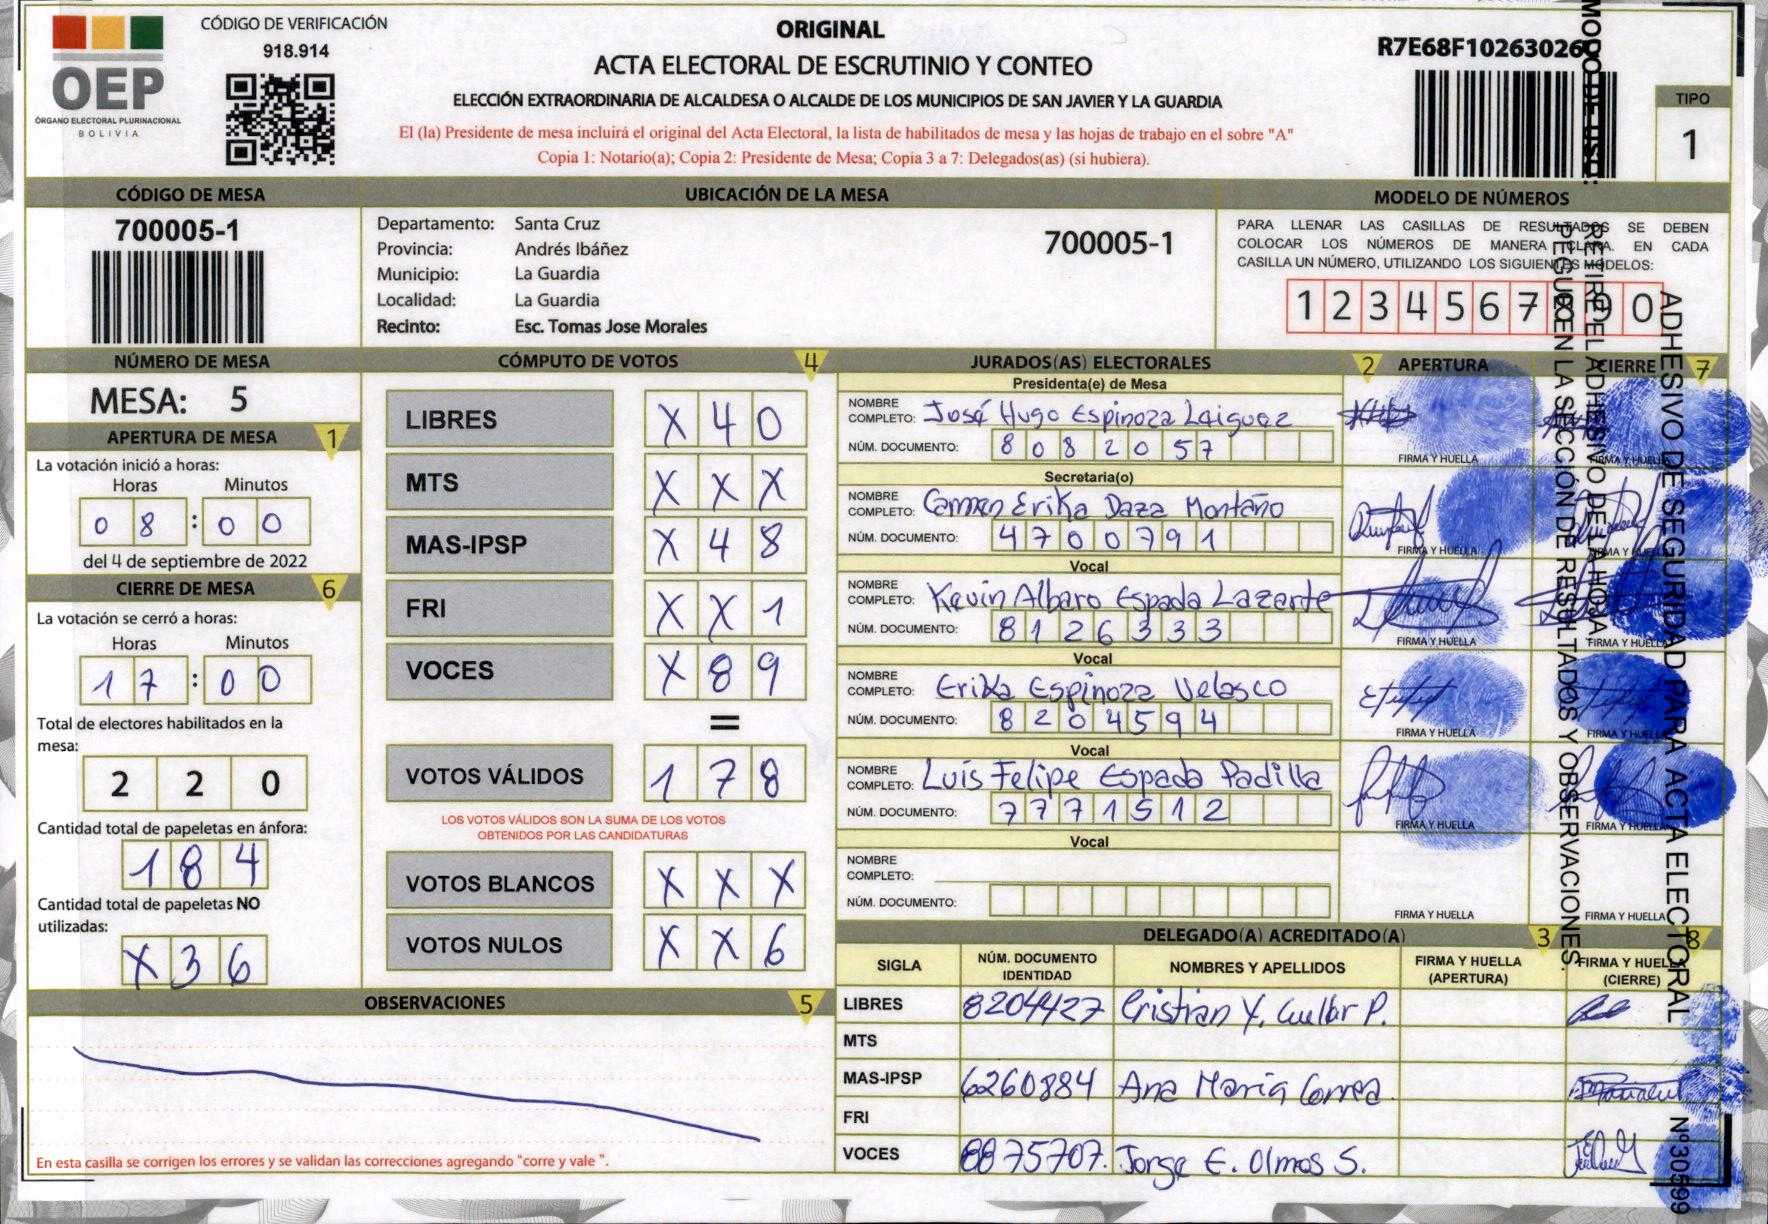 OEP
ÓRGANO ELECTORAL PLURINACIONAL
BOLIVIA
CÓDIGO DE VERIFICACIÓN
918.914
ORIGINAL
ACTA ELECTORAL DE ESCRUTINIO Y CONTEO
ELECCIÓN EXTRAORDINARIA DE ALCALDESA O ALCALDE DE LOS MUNICIPIOS DE SAN JAVIER Y LA GUARDIA
El (la) Presidente de mesa incluirá el original del Acta Electoral, la lista de habilitados de mesa y las hojas de trabajo en el sobre "A"
Copia 1: Notario(a); Copia 2: Presidente de Mesa; Copia 3 a 7: Delegados(as) (si hubiera).
R7E68F10263026
TIPO
1
CÓDIGO DE MESA
700005-1
UBICACIÓN DE LA MESA
Departamento: Santa Cruz
Provincia: Andrés Ibáñez
Municipio: La Guardia
Localidad: La Guardia
Recinto: Esc. Tomas Jose Morales
700005-1
MODELO DE NÚMEROS
PARA LLENAR LAS CASILLAS DE RESULTADOS SE DEBEN
COLOCAR LOS NÚMEROS DE MANERA CLARA. EN CADA
CASILLA UN NÚMERO, UTILIZANDO LOS SIGUIENTES MODELOS:
1 2 3 4 5 6 7 8 9 0
NÚMERO DE MESA
MESA: 5
APERTURA DE MESA 1
La votación inició a horas:
Horas Minutos
0 8 : 0 0
del 4 de septiembre de 2022
CIERRE DE MESA 6
La votación se cerró a horas:
Horas Minutos
1 7 : 0 0
Total de electores habilitados en la
mesa:
2 2 0
Cantidad total de papeletas en ánfora:
1 8 4
Cantidad total de papeletas NO
utilizadas:
X 3 6
CÓMPUTO DE VOTOS 4
LIBRES X 4 0
MTS X X X
MAS-IPSP X 4 8
FRI X X 1
VOCES X 8 9
=
VOTOS VÁLIDOS 1 7 8
LOS VOTOS VÁLIDOS SON LA SUMA DE LOS VOTOS
OBTENIDOS POR LAS CANDIDATURAS
VOTOS BLANCOS X X X
VOTOS NULOS X X 6
OBSERVACIONES 5
En esta casilla se corrigen los errores y se validan las correcciones agregando "corre y vale ".
JURADOS(AS) ELECTORALES 2 APERTURA CIERRE 7
Presidenta(e) de Mesa
NOMBRE
COMPLETO: José Hugo Espinoza Laiguez
NÚM. DOCUMENTO: 8 0 8 2 0 5 7
FIRMA Y HUELLA FIRMA Y HUELLA
Secretaria(o)
NOMBRE
COMPLETO: Carmen Erika Daza Montaño
NÚM. DOCUMENTO: 4 7 0 0 7 9 1
FIRMA Y HUELLA FIRMA Y HUELLA
Vocal
NOMBRE
COMPLETO: Kevin Albaro Espada Lazarte
NÚM. DOCUMENTO: 8 1 2 6 3 3 3
FIRMA Y HUELLA FIRMA Y HUELLA
Vocal
NOMBRE
COMPLETO: Erika Espinoza Velasco
NÚM. DOCUMENTO: 8 2 0 4 5 9 4
FIRMA Y HUELLA FIRMA Y HUELLA
Vocal
NOMBRE
COMPLETO: Luis Felipe Espada Padilla
NÚM. DOCUMENTO: 7 7 7 1 5 1 2
FIRMA Y HUELLA FIRMA Y HUELLA
Vocal
NOMBRE
COMPLETO:
NÚM. DOCUMENTO:
FIRMA Y HUELLA FIRMA Y HUELLA
DELEGADO(A) ACREDITADO(A) 3 8
SIGLA NÚM. DOCUMENTO IDENTIDAD NOMBRES Y APELLIDOS FIRMA Y HUELLA (APERTURA) FIRMA Y HUELLA (CIERRE)
LIBRES 8204427 Cristian Y. Cuellar P.
MTS
MAS-IPSP 6260884 Ana Maria Correa
FRI
VOCES 8875707. Jorge E. Olmos S.
MODO DE USO:
RETIRE EL ADHESIVO DE LA HOJA
PEGUE EN LA SECCIÓN DE RESULTADOS Y OBSERVACIONES.
ADHESIVO DE SEGURIDAD PARA ACTA ELECTORAL Nº30599